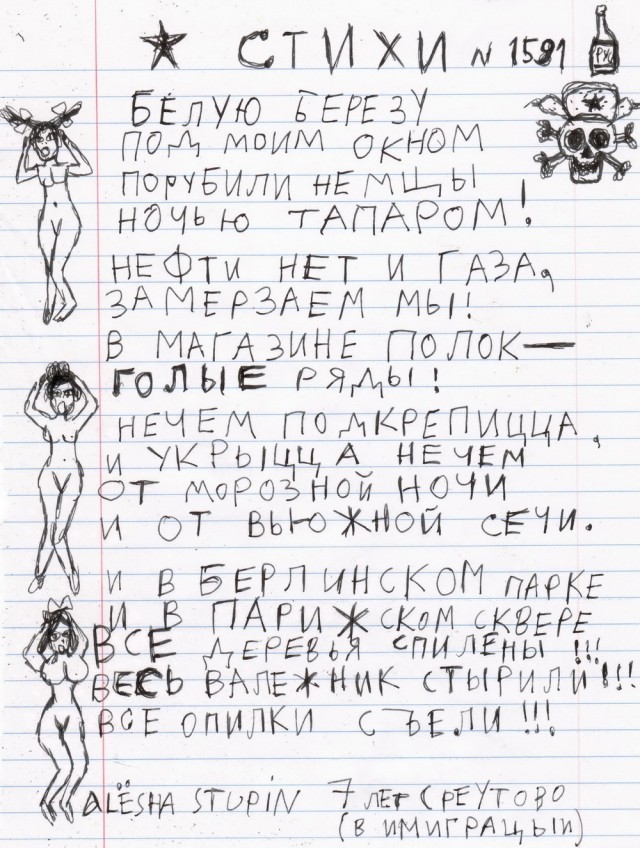 СТИХИ N 1591
РХ
БЕЛУЮ БЕРЕЗУ
ПОД МОИМ ОКНОМ
ПОРУБИЛИ НЕМЦЫ
НОЧЬЮ ТАПАРОМ!
НЕФТИ НЕТ И ГАЗА,
ЗАМЕРЗАЕМ МЫ!
В МАГАЗИНЕ ПОЛОК—
ГОЛЫЕ РЯДЫ!
НЕЧЕМ ПОДКРЕПИЦЦА,
И УКРЫЦЦА НЕЧЕМ
ОТ МОРОЗНОЙ НОЧИ
И ОТ ВЬЮЖНОЙ СЕЧИ.
И В БЕРЛИНСКОМ ПАРКЕ
И В ПАРИЖСКОМ СКВЕРЕ
ВСЕ ДЕРЕВЬЯ СПИЛЕНЫ !!!
ВЕСЬ ВАЛЕЖНИК СТЫРИЛИ!!!
ВСЕ ОПИЛКИ СЪЕЛИ!!!
ALЁSHA STUPIN 7 ЛЕТ С РЕУТОВО
(В ИМИГРАЦЫИ)